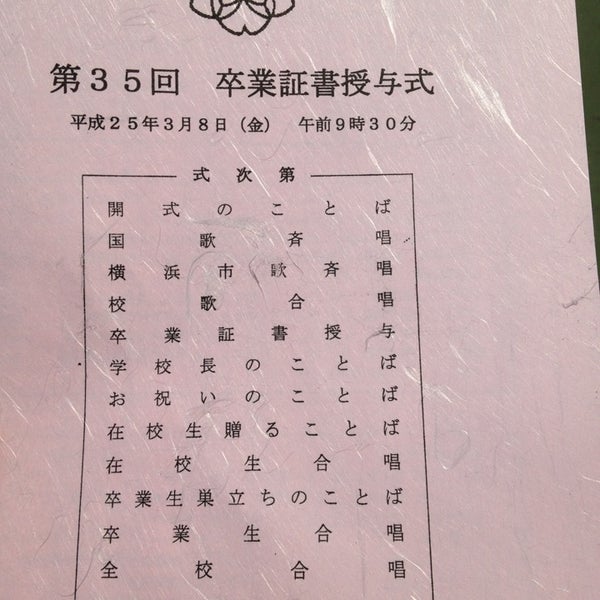 第３５回　卒業証書授与式
平成２５年３月８日（金）　午前９時３０分
式次第
開式のことば
国歌斉唱
横浜市歌斉唱
校歌合唱
卒業証書授与
学校長のことば
お祝いのことば
在校生贈ることば
在校生合唱
卒業生巣立ちのことば
卒業生合唱
全校合唱